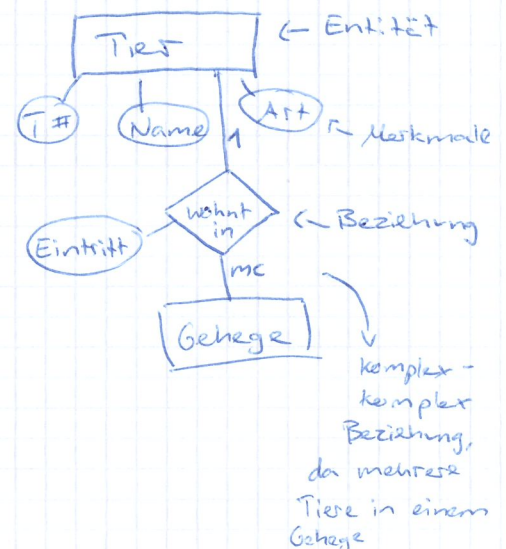 Tier
← Entität
T#
Name
Art
← Merkmale
1
wohnt
in
← Beziehung
Eintritt
mc
Gehege
komplex-
komplex
Beziehung,
da mehrere
Tiere in einem
Gehege